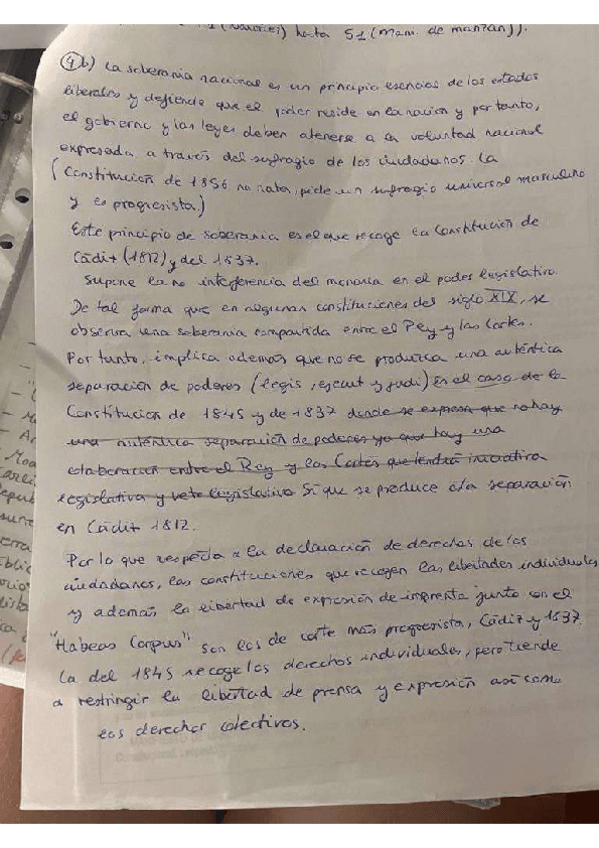 hasta 51 (Mam. de manzan)).
4b) La soberanía nacional es un principio esencias de los estados
liberales y defiende que el poder reside en la nación y por tanto,
el gobierno y las leyes deben atenerse a la voluntad nacional
expresada a través del sufragio de los ciudadanos. La
(Constitución de 1856 no nata, pide un sufragio universal masculino
y es progresista.)
Este principio de soberanía es el que recoge la Constitución de
Cádiz (1812) y del 1837.
Supone la no interferencia del monarca en el poder legislativo.
De tal forma que en algunas constituciones del siglo XIX, se
observa una soberanía compartida entre el Rey y las Cortes.
Por tanto, implica además que no se produzca una auténtica
separación de poderes (legis, eject y judi) en el caso de la
Constitución de 1845 y de 1837 donde se expresa que no hay
una auténtica separación de poderes ya que hay una
colaboración entre el Rey y las Cortes que tendrá iniciativa
legislativa y veto legislativo Si que se produce esta separación
en Cádiz 1812.
Por lo que respecta a la declaración de derechos de los
ciudadanos, las constituciones que recogen las libertades individuales
y además la libertad de expresión de imprenta junto con el
"Habeas Corpus" son las de corte más progresista, Cádiz y 1837.
La del 1845 recoge los derechos individuales, pero tiende
a restringir la libertad de prensa y expresión así como
los derechos colectivos.